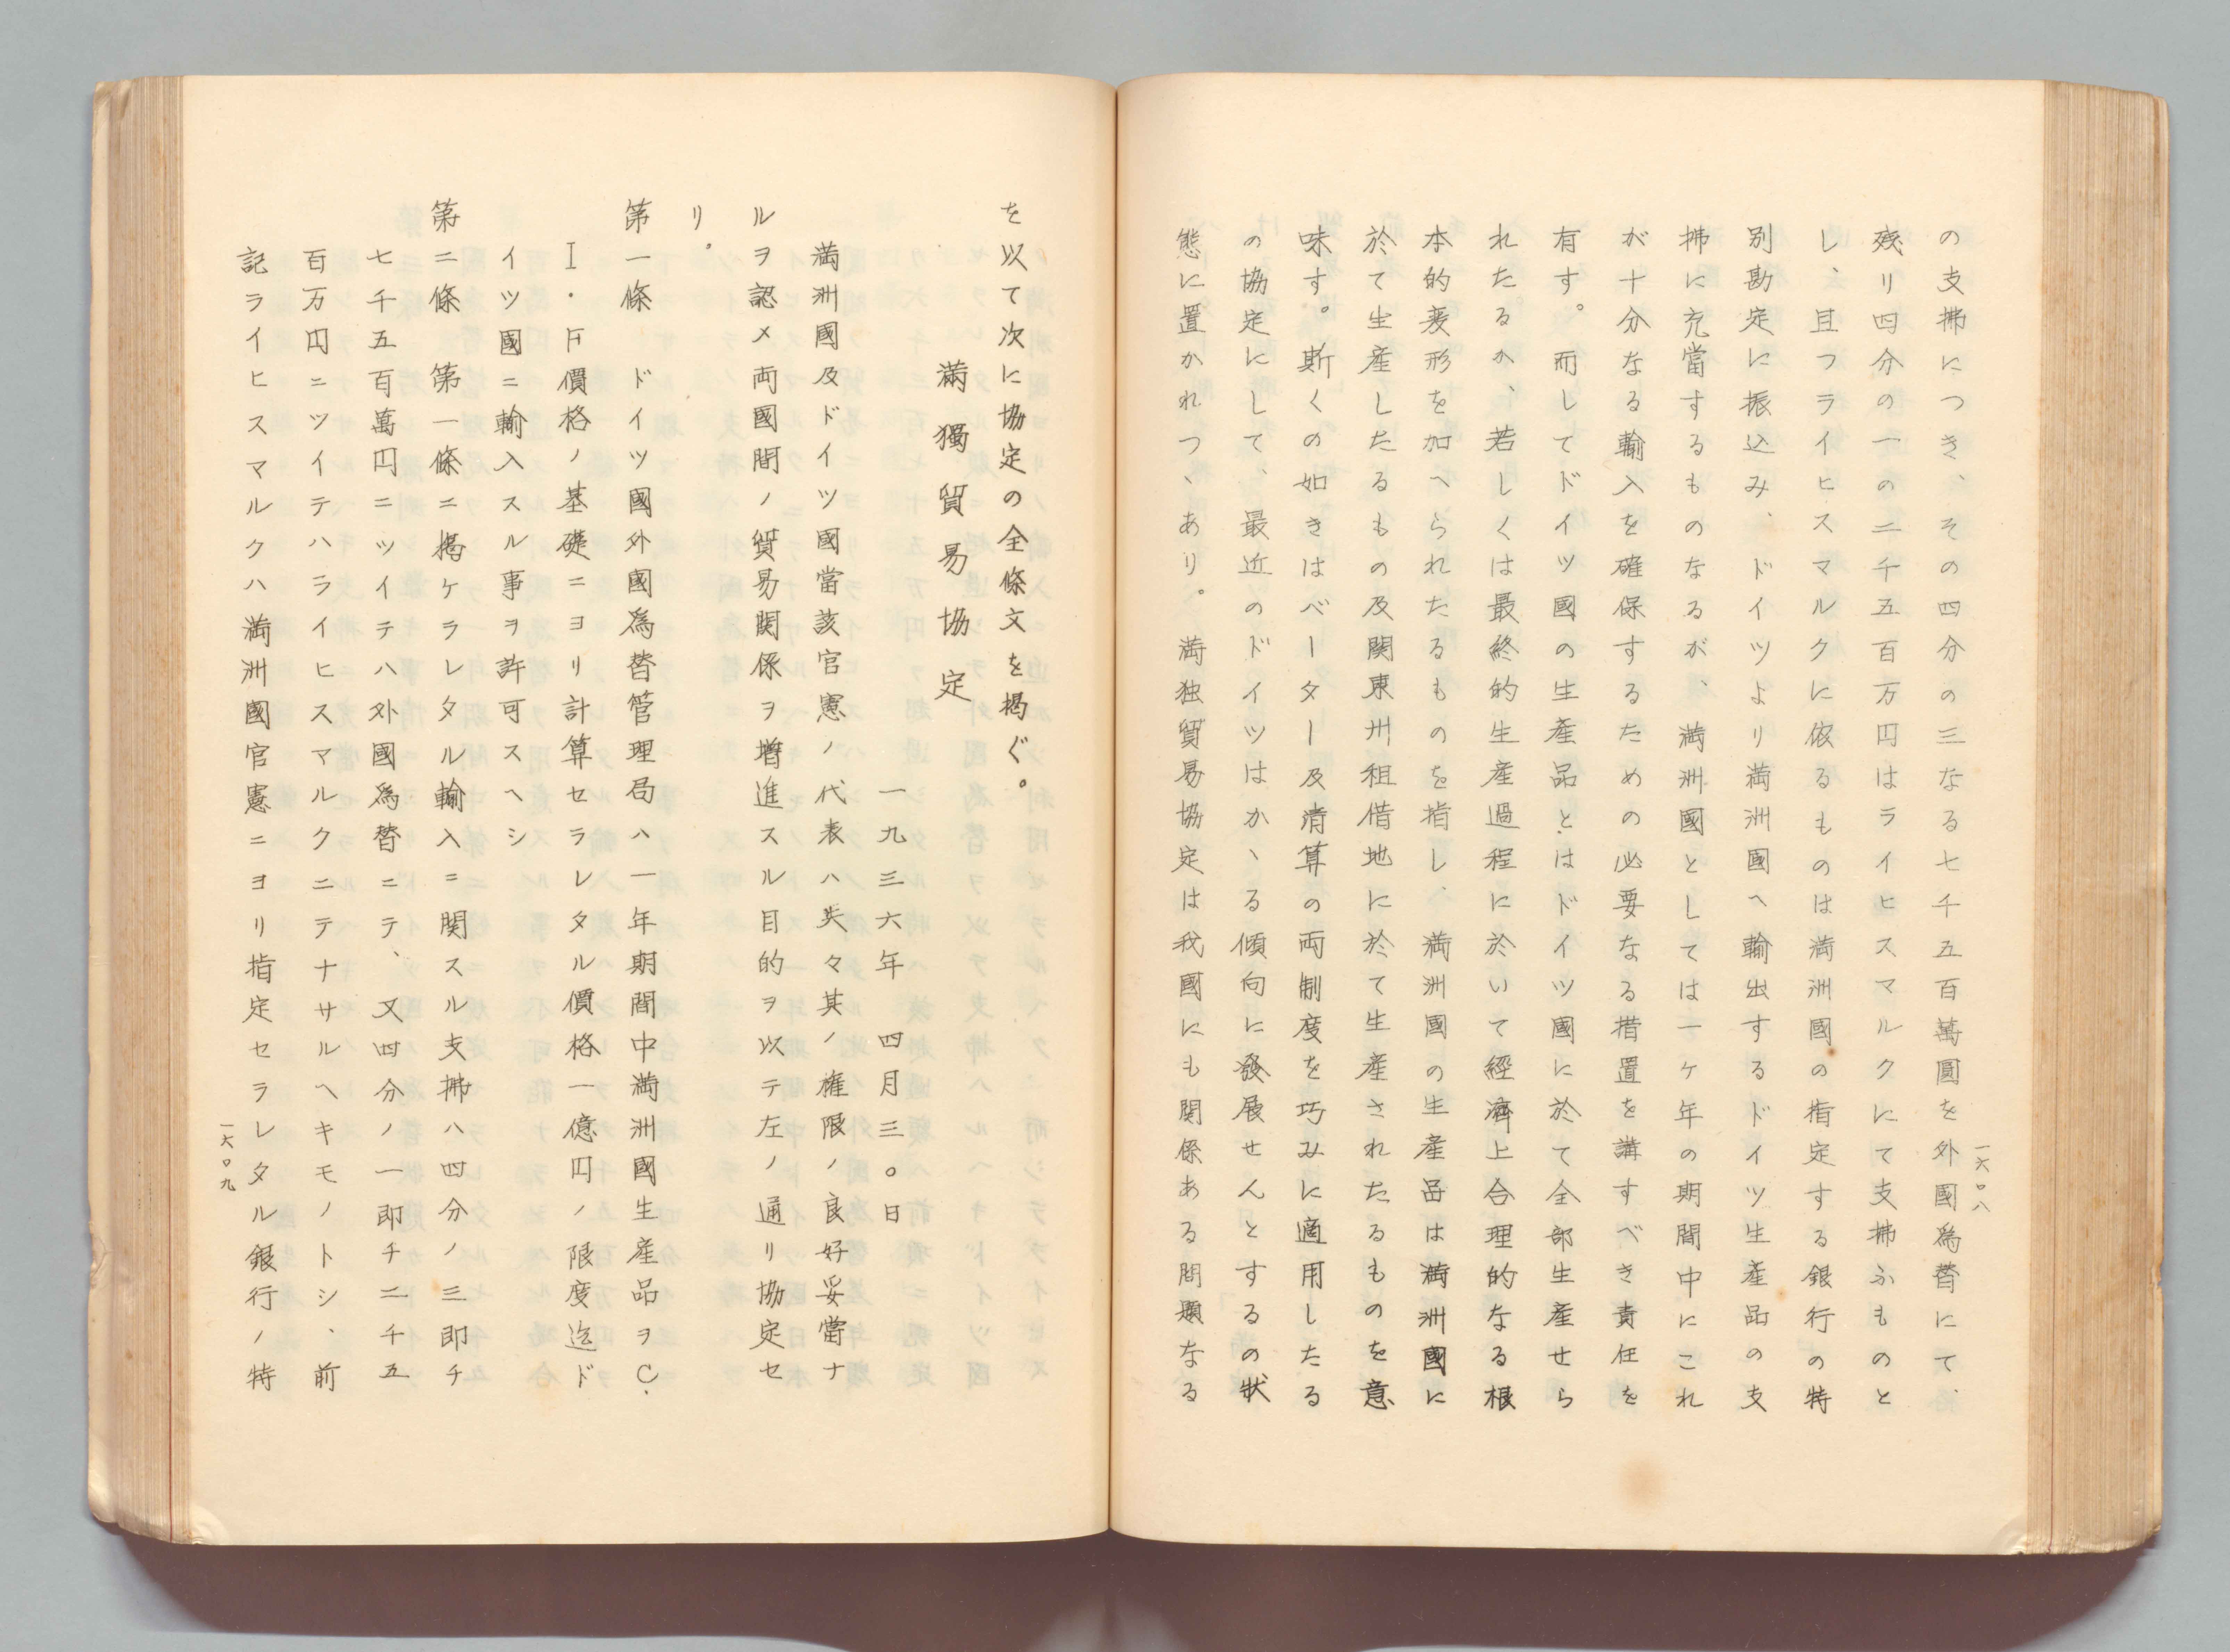 一六〇八
の支拂につき、その四分の三なる七千五百萬圓を外國爲替にて、
残リ四分の一の二千五百万円はライヒスマルクにて支拂ふものと
し、且つライヒスマルクに依るものは満洲國の指定する銀行の特
別勘定に振込み、ドイツより満洲國へ輸出するドイツ生産品の支
拂に充當するものなるが、満洲國としては一ケ年の期間中にこれ
が十分なる輸入を確保するための必要なる措置を講すべき責任を
有す。而してドイツ國の生産品とはドイツ國に於て全部生産せら
れたるか、若しくは最終的生産過程に於いて經濟上合理的なる根
本的変形を加へられたるものを指し、満洲國の生産品は満洲國に
於て生産したるもの及関東州租借地に於て生産されたるものを意
味す。斯くの如きはベーター及清算の両制度を巧みに適用したる
の協定にして、最近のドイツはかゝる傾向に發展せんとするの状
態に置かれつゝあり。満独貿易協定は我國にも関係ある問題なる
を以て次に協定の全條文を掲ぐ。
満獨貿易協定
一九三六年四月三〇日
満洲國及ドイツ國當該官憲ノ代表ハ夫々其ノ権限ノ良好妥當ナ
ルヲ認メ両國間ノ貿易関係ヲ増進スル目的ヲ以テ左ノ通リ協定セ
リ。
第一條　ドイツ國外國爲替管理局ハ一年期間中満洲國生産品ヲC.
I.F價格ノ基礎ニヨリ計算セラレタル價格一億円ノ限度迄ド
イツ國ニ輸入スル事ヲ許可スヘシ
第二條　第一條ニ掲ケラレタル輸入ニ関スル支拂ハ四分ノ三即チ
七千五百萬円ニツイテハ外國爲替ニテ、又四分ノ一即チ二千五
百万円ニツイテハライヒスマルクニテナサルヘキモノトシ、前
記ライヒスマルクハ満洲國官憲ニヨリ指定セラレタル銀行ノ特
一六〇九